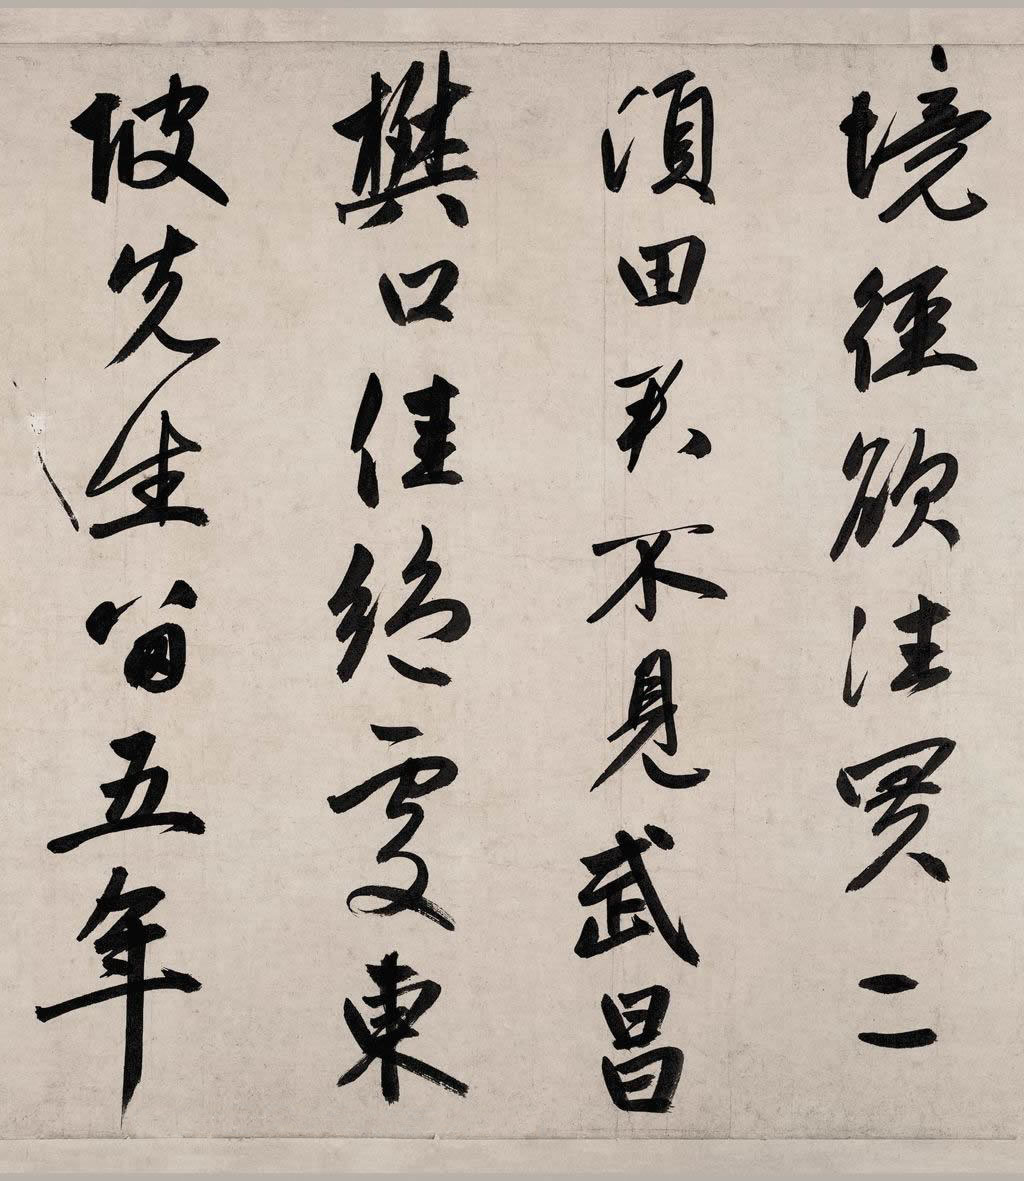 境徑欲往買二
頃田君不見武昌
樊口佳絕處東
坡先生留五年